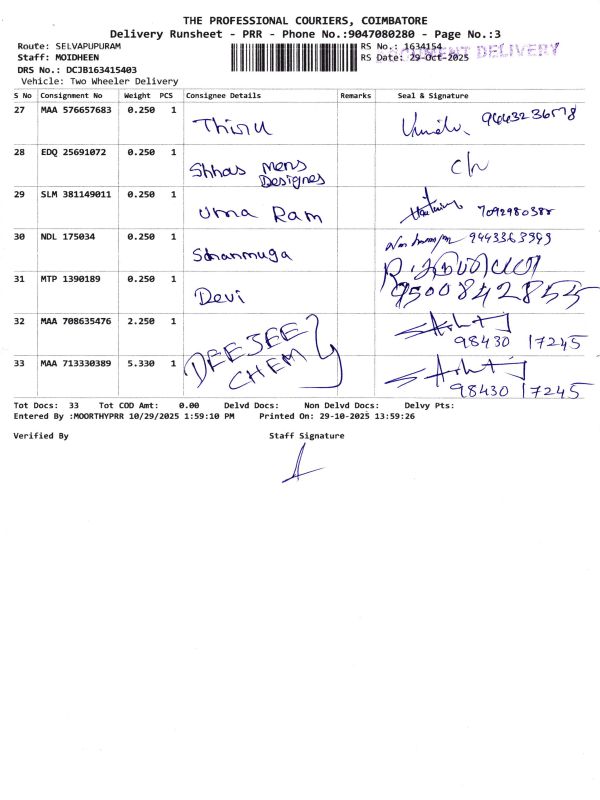 THE PROFESSIONAL COURIERS, COIMBATORE
Delivery Runsheet - PRR - Phone No.:9047080280 - Page No.:3
Route: SELVAPUPURAM RS No.: 1634154
DOCUMENT DELIVERY
Staff: MOIDHEEN RS Date: 29-Oct-2025
DRS No.: DCJB163415403
Vehicle: Two Wheeler Delivery
S No Consignment No Weight PCS Consignee Details Remarks Seal & Signature
27 MAA 576657683 0.250 1 Thiru
28 EDQ 25691072 0.250 1 Shhas mens Designes
29 SLM 381149011 0.250 1 uma Ram 7092980388
30 NDL 175034 0.250 1 Shanmuga 9443363393
31 MTP 1390189 0.250 1 Devi 9500842855
32 MAA 708635476 2.250 1 DEEJEE CHEM 98430 17245
33 MAA 713330389 5.330 1 98430 17245
Tot Docs: 33 Tot COD Amt: 0.00 Delvd Docs: Non Delvd Docs: Delvy Pts:
Entered By :MOORTHYPRR 10/29/2025 1:59:10 PM Printed On: 29-10-2025 13:59:26
Verified By Staff Signature